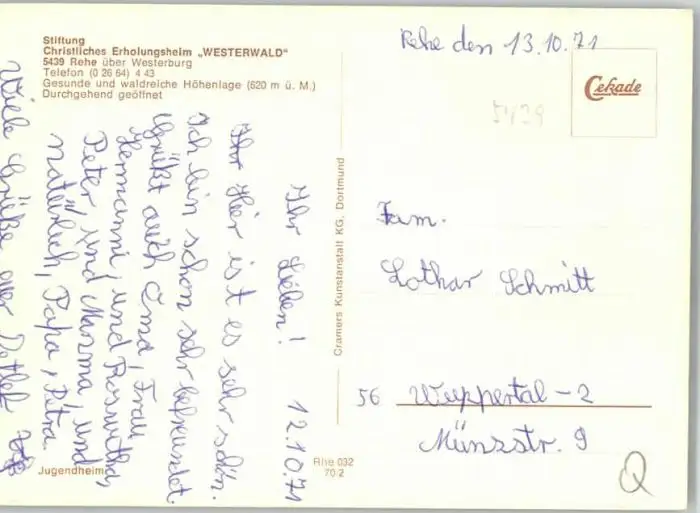 Stiftung
Christliches Erholungsheim „WESTERWALD“
5439 Rehe über Westerburg
Telefon (0 26 64) 4 43
Gesunde und waldreiche Höhenlage (620 m ü. M.)
Durchgehend geöffnet
Ihr Lieben! 12.10.71
Hier ist es sehr schön.
Ich bin schon sehr befreundet.
Grüßt auch Oma, Frau
Hermanni, und Roswitha,
Peter, und Mama, und
natürlich, Papa, Petra.
Viele Grüße euer Detlef
Jugendheim
Cramers Kunstanstalt KG. Dortmund
Rhe 032
70 2
Rehe den 13.10.71
Cekade
5439
Fam.
Lothar Schmitt
56 Wuppertal-2
Münzstr. 9
Q